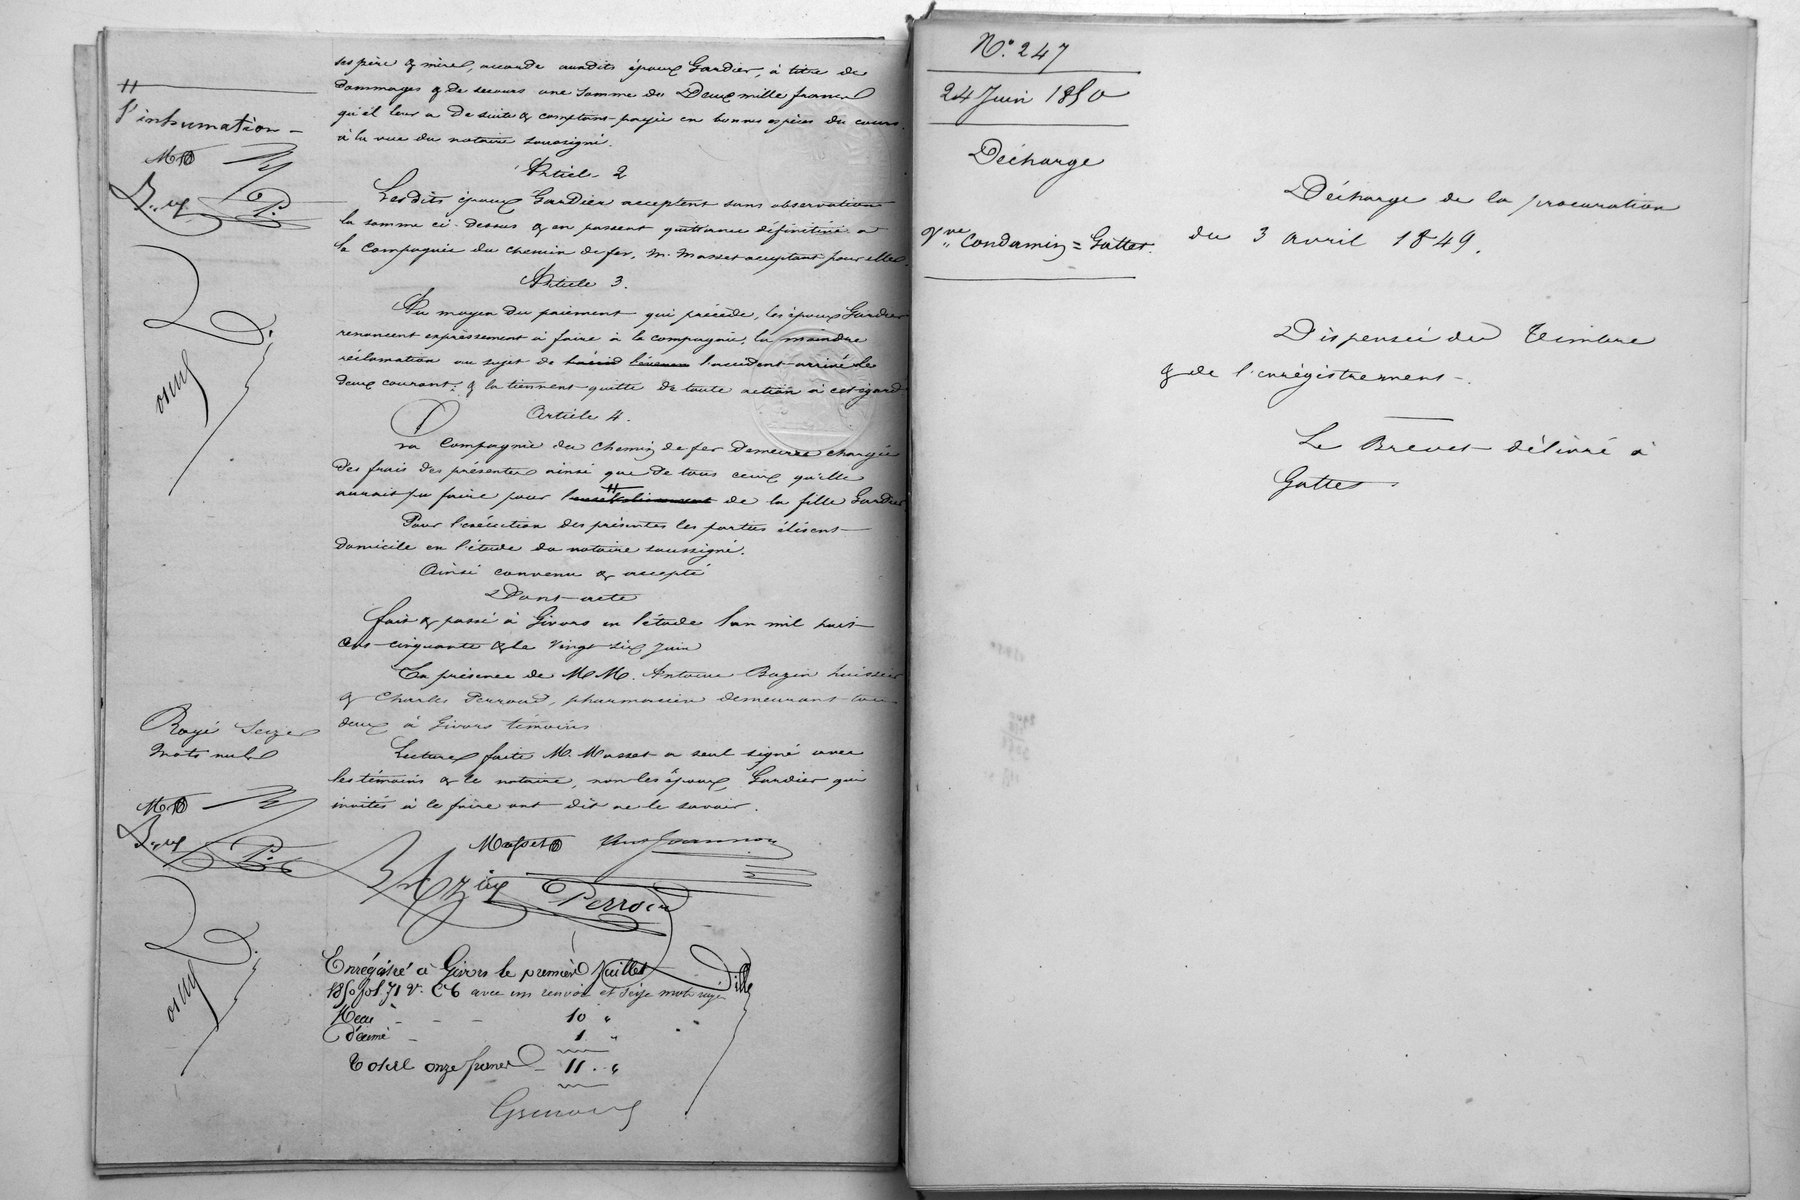 ses père & mère, accorde auxdits époux Gardier, à titre de
dommages & de secours une somme de Deux mille francs
qu'il leur a de suite & comptant payée en bonnes espèces du cours
à la vue du notaire soussigné.
Article 2
Lesdits époux Gardier acceptent sans observation
la somme ci-dessus & en passent quittance définitive à
la Compagnie du chemin de fer, M. Masset acceptant pour elle.
Article 3.
Au moyen du paiement qui précède, les époux Gardier
renoncent expressément à faire à la compagnie, la moindre
réclamation au sujet de l'accident arrivé le
deux courant, & la tiennent quitte de toute action à cet égard.
Article 4.
La Compagnie du Chemin de fer demeure chargée
des frais des présentes ainsi que de tous ceux qu'elle
aurait pu faire pour l'ensevelissement de la fille Gardier
Pour l'exécution des présentes les parties élisent
domicile en l'étude du notaire soussigné.
Ainsi convenu & accepté
Dont acte
fait & passé à Givors en l'étude l'an mil huit
cent cinquante & le vingt six Juin
En présence de MM. Antoine Bazin huissier
& Charles Perroud, pharmacien demeurant tous
deux à Givors témoins
Lecture faite M. Masset a seul signé avec
les témoins & le notaire, non les époux Gardier qui
invités à le faire ont dit ne le savoir.
Masset
Bazin Perroud
Enrégistré à Givors le premier Juillet
1850 fol 71 v. C 6 avec un renvoi et seize mots rayés
Reçu - - - 10 "
décime - 1 "
Total onze francs - 11 . "
l'inhumation -
Rayé Seize
mots nuls
N° 247
24 Juin 1850
Décharge
Vve Condamin = Gattet.
Décharge de la procuration
du 3 avril 1849.
Dispensée du Timbre
& de l'enrégistrement -.
Le Brevet délivré à
Gattet.